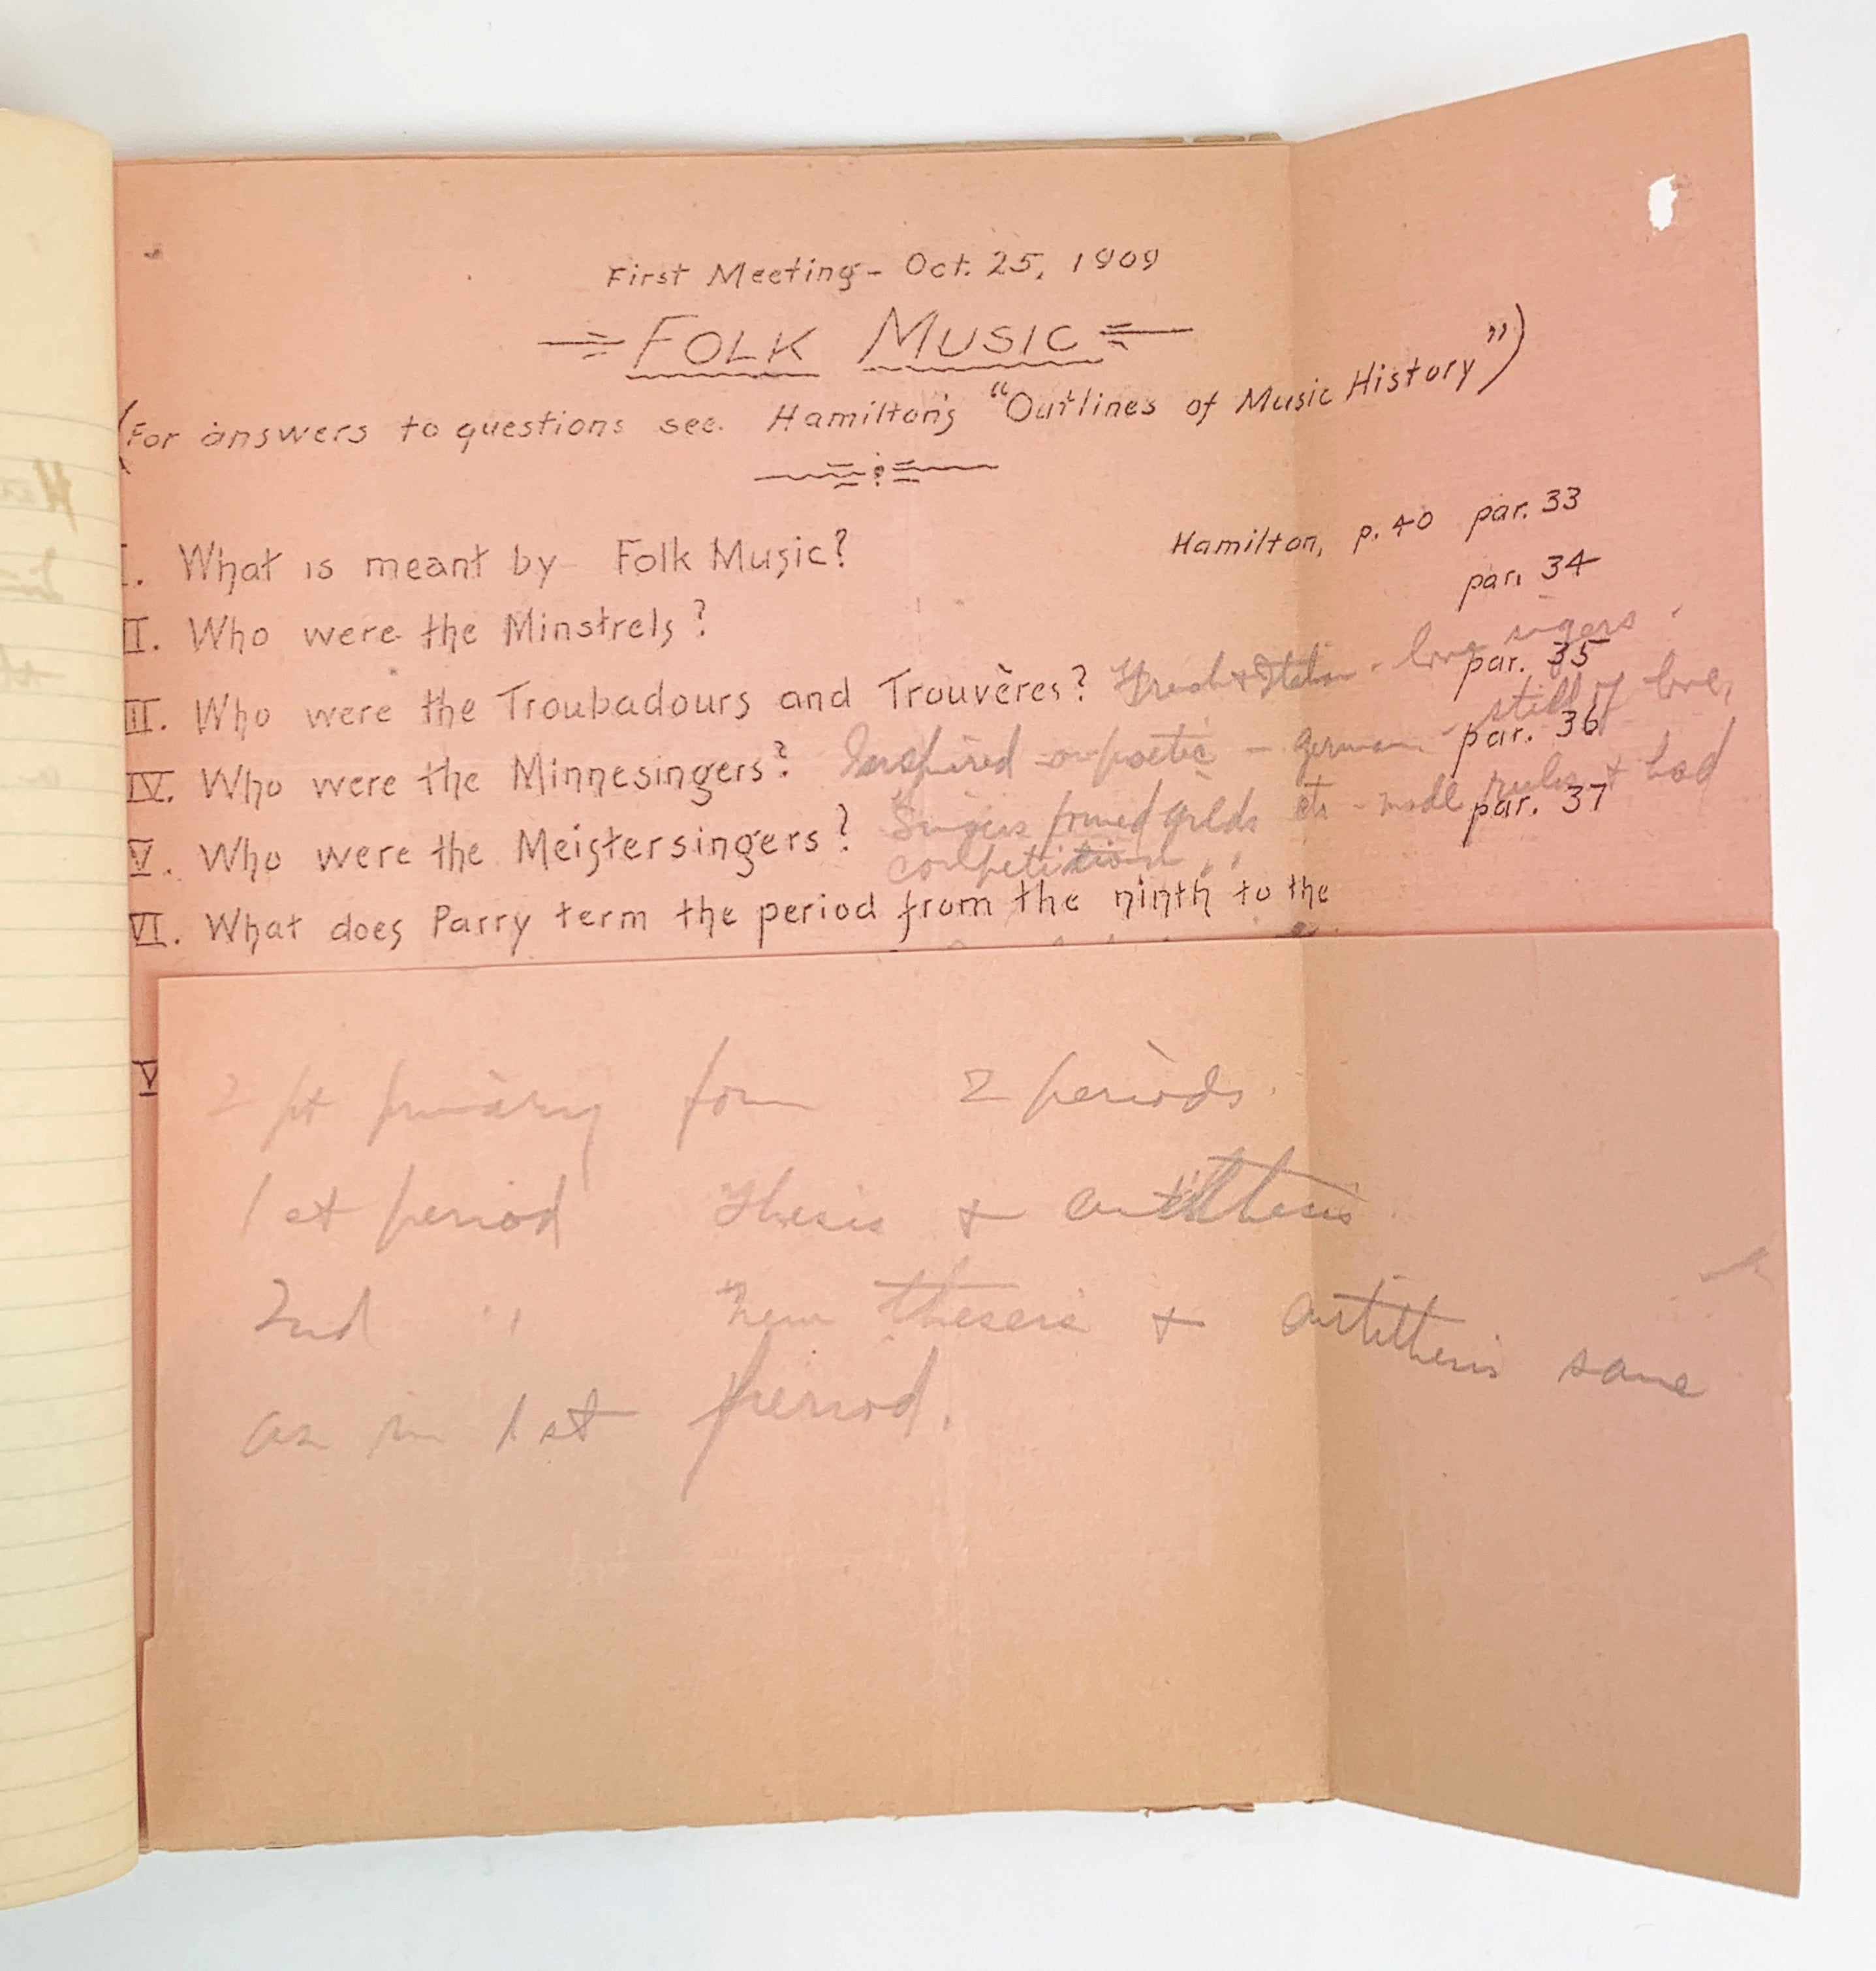 First Meeting - Oct. 25, 1909
FOLK MUSIC
(For answers to questions see Hamilton's "Outlines of Music History")
I. What is meant by Folk Music? Hamilton, p. 40 par. 33
II. Who were the Minstrels? par. 34
III. Who were the Troubadours and Trouvères? French & Italian - love singers. par. 35
IV. Who were the Minnesingers? Inspired poetic - German - still of love, par. 36
V. Who were the Meistersingers? Singers formed gilds etc - made rules & had par. 37
competitions
VI. What does Parry term the period from the ninth to the
V
2 pt primary form 2 periods.
1st period Thesis & antithesis.
2nd " New thesis & antithesis same
as in 1st period.